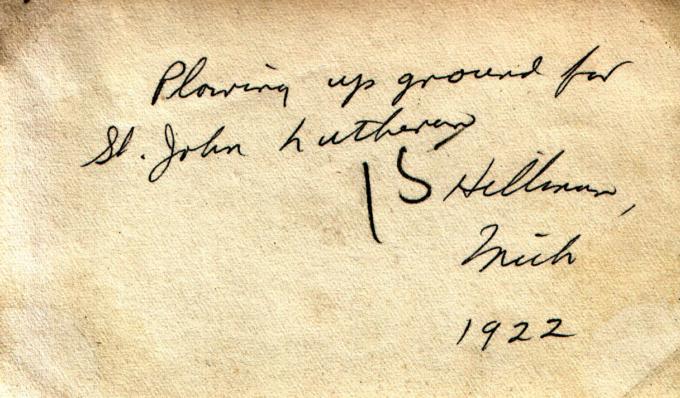 Plowing up ground for
St. John Lutheran
15
Hillman,
Mich
1922